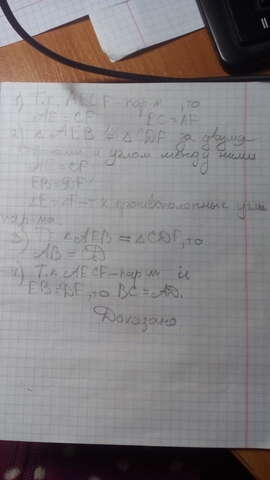 1) Т.к. AECF - пар-м, то
AE = CF    EC = AF
2) △ AEB и △ CDF за двумя
и углом между ними
AE = CF
EB = DF
∠E = ∠F - т.к противоположные углы
пар-ма
3) Т. к. AEB = △ CDF, то
AB =
4) Т.к. AECF - пар-м и
EB = DF, то BC = AD.
Доказано